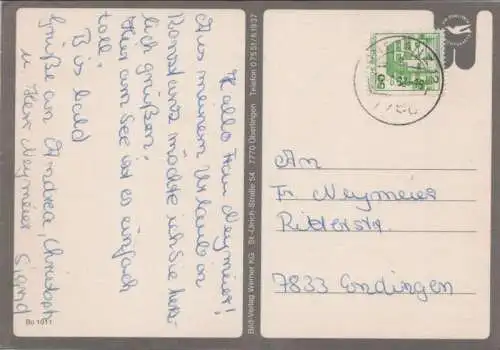 Hallo Frau Neymeier!
Aus meinem Urlaub in
Konstanz möchte ich Sie herz-
lich grüßen!
Hier am See ist es einfach
toll!
Bis bald
Grüße an Andrea, Christoph
u Herr Neymeier
Sigrid
Bo 1011
Bild-Verlag Werner KG St.-Ulrich-Straße 54 7770 Überlingen Telefon 0 75 51 / 6 19 37
50
An
Fr Neymeier
Ritterstr.
7833 Endingen